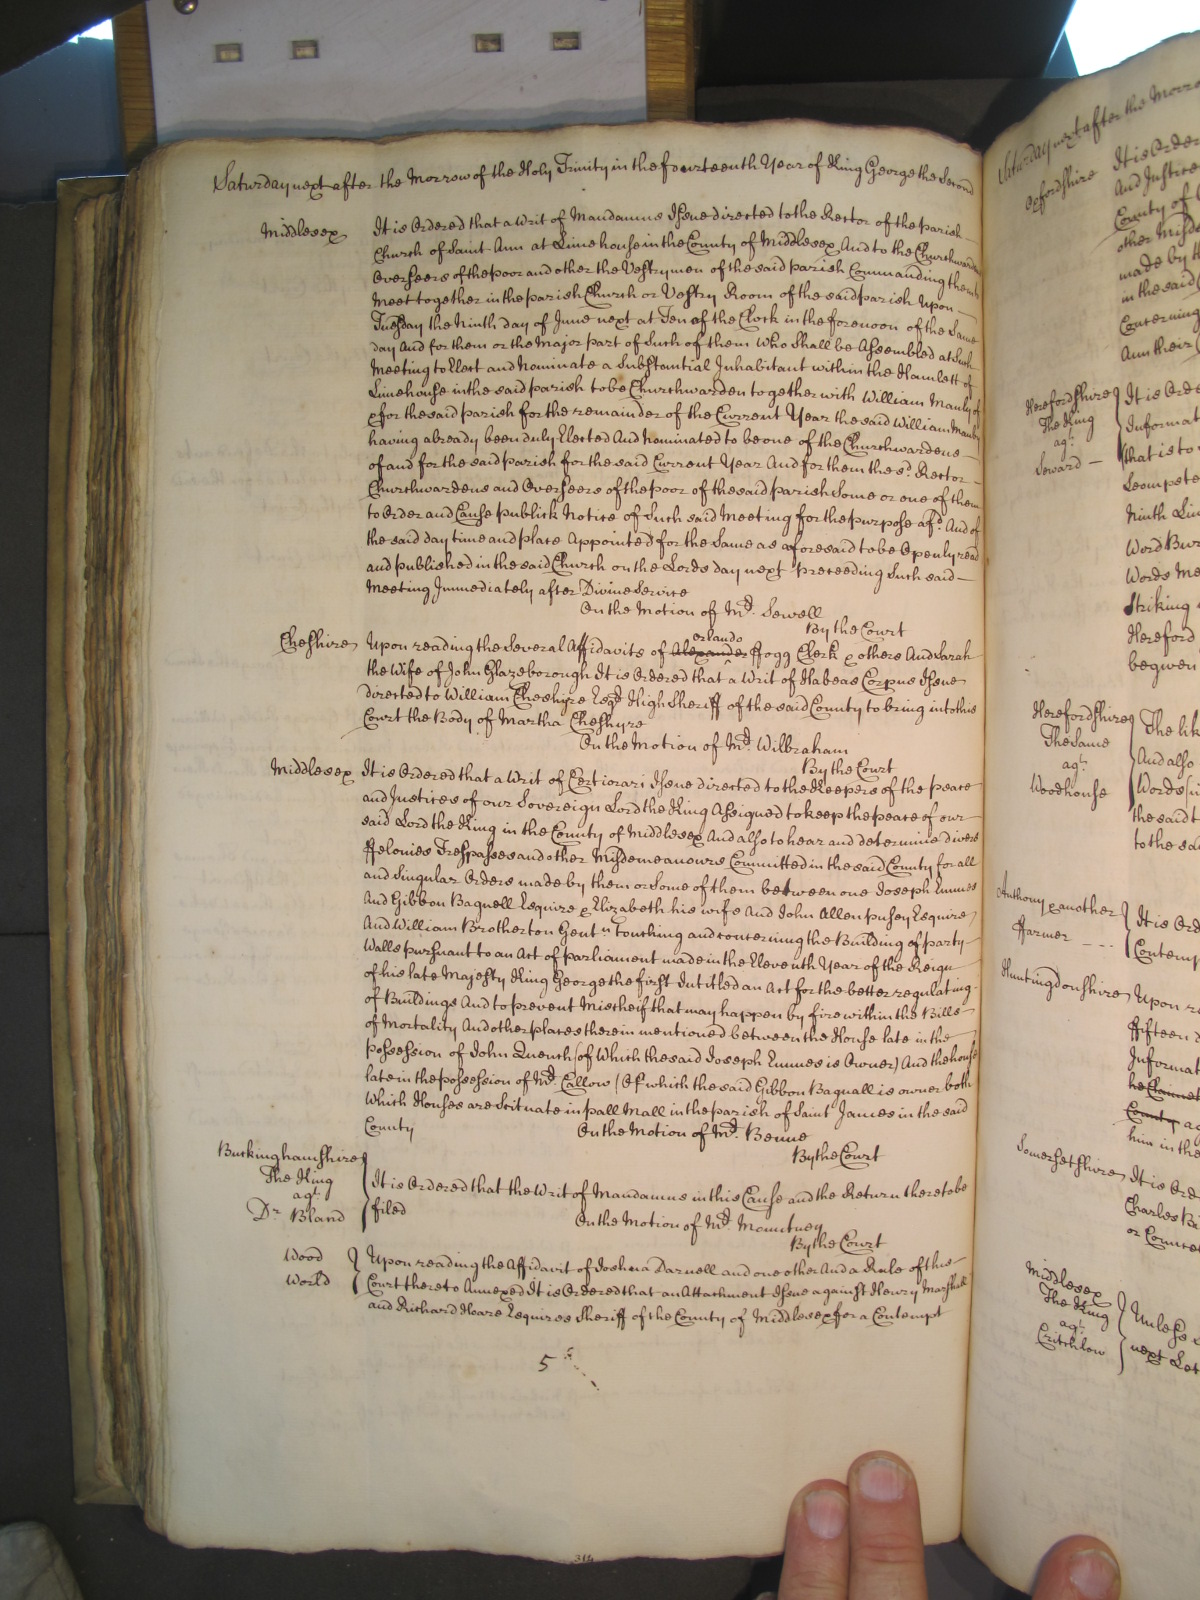 Saturday next after the Morrow of the Holy Trinity in the fourteenth Year of King George the Second
Middlesex
It is Ordered that a Writ of Mandamus Issue directed to the Rector of the parish
Church of Saint Ann at Limehouse in the County of Middlesex And to the Churchwardens
Overseers of the poor and other the Vestrymen of the said parish Commanding them to
Meet together in the parish Church or Vestry Room of the said parish Upon
Tuesday the Ninth day of June next at Ten of the Clock in the forenoon of the Same
day And for them or the Major part of Such of them Who Shall be Assembled at Such
Meeting to Elect and Nominate a Substantial Inhabitant within the Hamlett of
Limehouse in the said parish to be Churchwarden together with William Manby of
& for the said parish for the remainder of the Current Year the said William Manby
having already been duly Elected And nominated to be one of the Churchwardens
of and for the said parish for the said Current Year And for them the sd. Rector
Churchwardens and Overseers of the poor of the said parish Some or one of them
to Order and Cause publick Notice of Such said Meeting for the purpose afd. And of
the said day time and place Appointed for the Same as aforesaid to be Openly read
and published in the said Church on the Lords day next preceeding Such said
Meeting Immediately after Divine Service
On the Motion of Mr. Sewell
By the Court
Cheshire
orlando
Upon reading the Several Affidavits of Alexander ffogg Clerk & others And Sarah
the Wife of John Glazeborough It is Ordered that a Writ of Habeas Corpus Issue
directed to William Cheshyre Esqr. High Sheriff of the said County to bring into this
Court the Body of Martha Cheshyre
On the Motion of Mr. Wilbraham
By the Court
Middlesex
It is Ordered that a Writ of Certiorari Issue directed to the Keepers of the peace
and Justices of our Sovereign Lord the King Assigned to keep the peace of our
said Lord the King in the County of Middlesex And also to hear and determine divers
ffelonies Trespasses and other Misdemeanours Committed in the said County for all
and Singular Orders made by them or Some of them between one Joseph Emmes
And Gibbon Bagnell Esquire & Elizabeth his wife And John Allen pusey Esquire
And William Brotherton Gentn. touching and concerning the Building of party
Walls pursuant to an Act of parliament made in the Eleventh Year of the Reign
of his late Majesty King George the first Intitled an Act for the better regulating
of Buildings And to prevent Mischeif that may happen by fire within the Bills
of Mortality And other places therein mentioned between the House late in the
possession of John Quench (of Which the said Joseph Emmes is Owner) And the house
late in the possession of Mr. Callow (Of which the said Gibbon Bagnall is owner both
Which Houses are Scituate in pall Mall in the parish of Saint James in the said
County
On the Motion of Mr. Benne
By the Court
Buckinghamshire
The King
agt.
Dr. Bland
It is Ordered that the Writ of Mandamus in this Cause and the Return thereto be
filed
On the Motion of Mr. Mountney
By the Court
Wood
World
Upon reading the Affidavit of Joshua Darnell and one other And a Rule of this
Court thereto Annexed It is Ordered that an Attachment Issue against Henry Marshall
and Richard Hoare Esquires Sheriff of the County of Middlesex for a Contempt
5
314
Saturday next after the Morro
Oxfordshire
It is Order
And Justice
County of
other Misde
made by th
in the said
Concerning
Ann their
Herefordshire
The King
agt.
Seward
It is Orde
Informat
that is to
Ninth Lin
Words Me
Striking
Hereford
begwen
Herefordshire
The Same
agt.
Woodhouse
The lik
And also
Words
the said
to the sa
Anthony & another
ffarmer
It is Ord
Contemp
Huntingdonshire
Upon r
ffifteen
Informat
County
him in the
Somersetshire
It is Ord
Charles
Middlesex
The King
agt.
Critchlow
Unless
next